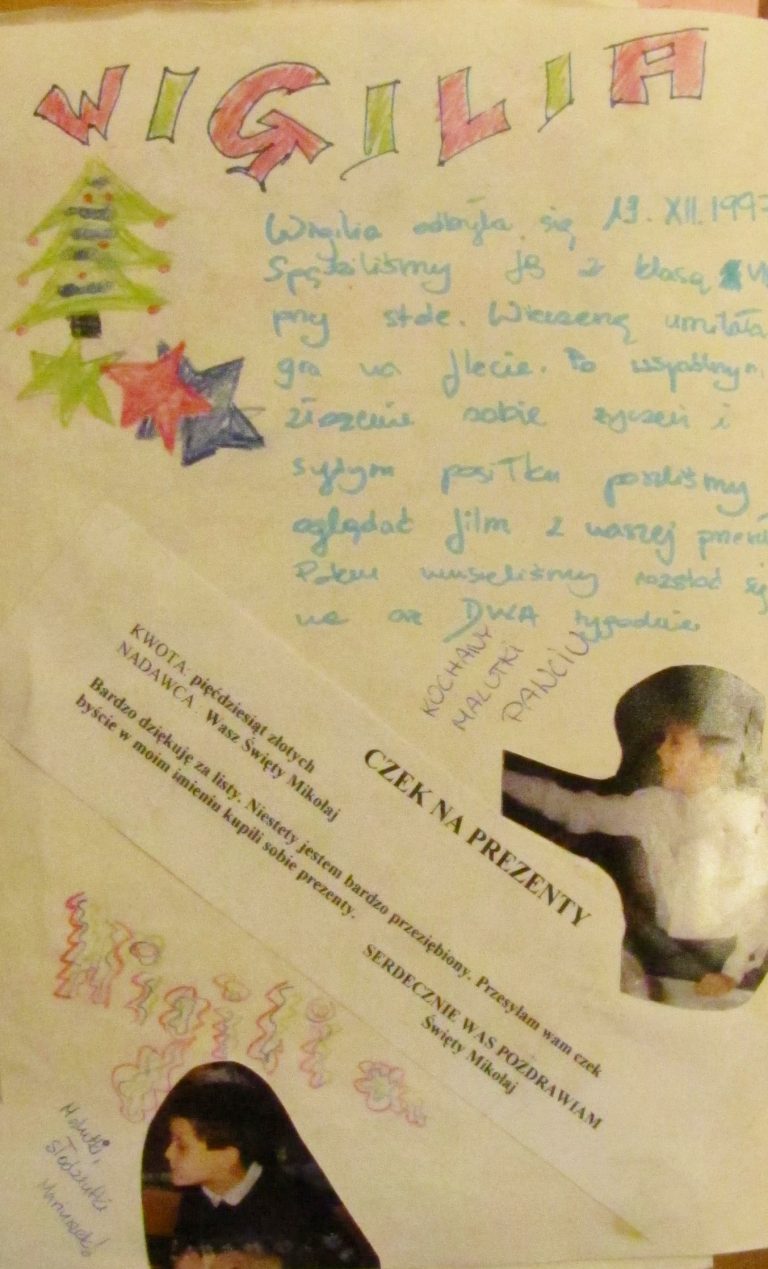 WIGILIA
Wigilia odbyła się 19. XII. 1997
Spędziliśmy ją z klasą
przy stole. Wieczerzę umilała
gra na flecie. Po wspólnym
złożeniu sobie życzeń i
sytym posiłku poszliśmy
oglądać film z naszej
Potem musieliśmy rozstać się
na aż DWA tygodnie
KOCHANY
MALUTKI
KWOTA: pięćdziesiąt złotych
NADAWCA: Wasz Święty Mikołaj
CZEK NA PREZENTY
Bardzo dziękuję za listy. Niestety jestem bardzo przeziębiony. Przesyłam wam czek
byście w moim imieniu kupili sobie prezenty.
SERDECZNIE WAS POZDRAWIAM
Święty Mikołaj
Wigilia
Malutki,
słodziutki